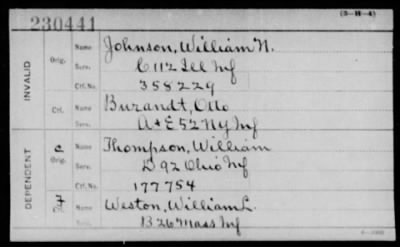 (3-H-4)
230441
INVALID
Orig. Name Johnson, William N.
Serv. C 112 Ill Inf
Ctf. No. 358229
Ctf. Name Burandt, Otto
Serv. A & E 52 N.Y. Inf
DEPENDENT
C Orig. Name Thompson, William
Serv. D 92 Ohio Inf
Ctf. No. 177754
Ctf. Name Weston, William L.
Serv. B 26 Mass Inf